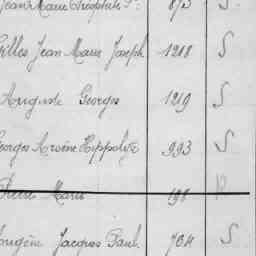 Jean Marie Théophile Fs: 873 S
Gilles Jean Marie Joseph 1288 S
Auguste Georges 1219 S
Georges Arsène Hippolyte 993 S
Pierre Marie 198 R
Eugène Jacques Paul. 764 S